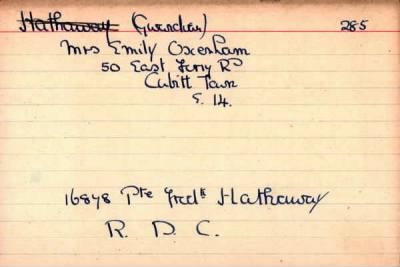 Hathaway (Guardian) 285
Mrs Emily Oxenham
50 East Ferry Rd
Cubitt Town
E. 14.
16878 Pte Fredk Hathaway
R. D. C.